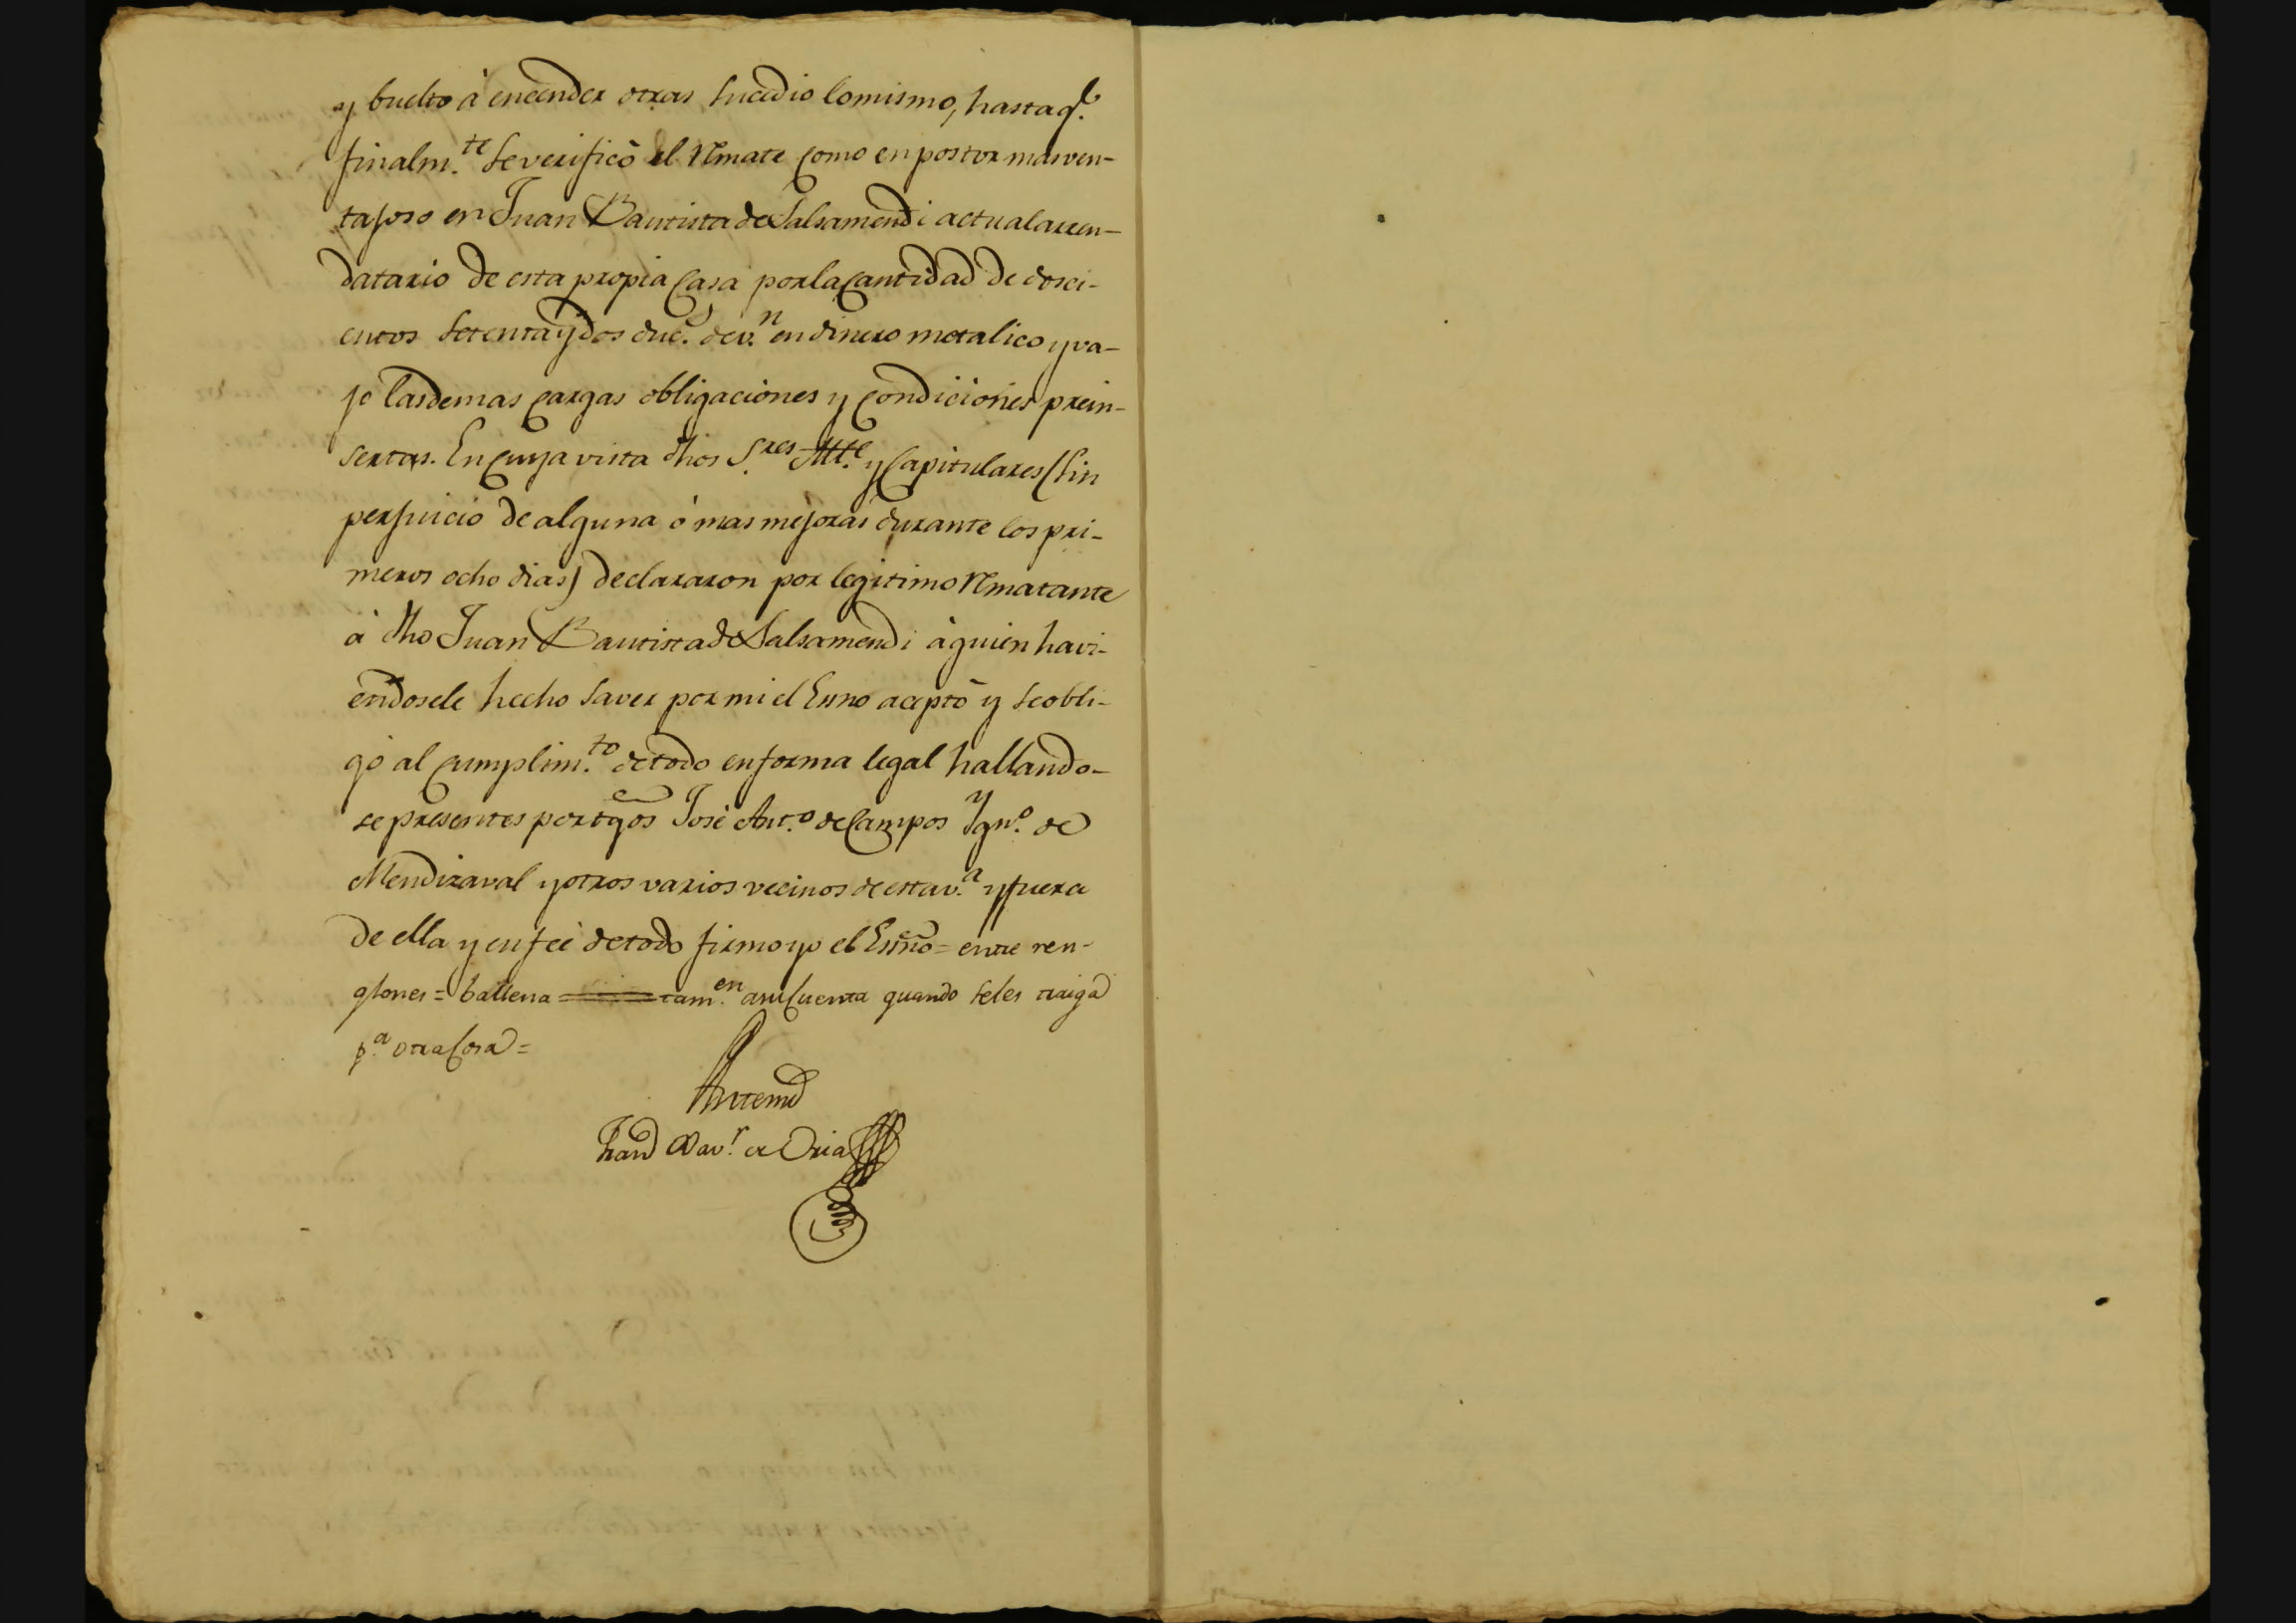 y buelto à encender otras sucedio lomismo, hasta q.e
finalm.te severificò el Rmate como en postor mas ven-
tajoso en Juan Bautista de Salsamendi actual arren-
datario de esta propia Casa por la Cantidad de dosci-
entos setenta y dos duc.s de v.n en dinero metalico y va-
jo las demas Cargas obligaciones y Condiciones prein-
sertas. En Cuya vista dhos S.res Alt.e y Capitulares (sin
perjuicio de alguna ò mas mejoras durante los pri-
meros ocho dias) declararon por legitimo Rmatante
à dho Juan Bautista de Salsamendi à quien havi-
endosele hecho saver por mi el Esno aceptò y se obli-
gò al Cumplim.to de todo en forma legal hallando-
se presentes por tgos José Ant.o de Campos Ygn.o de
Mendizaval y otros varios vecinos de esta v.a y fuera
de ella y en feè de todo firmo yo el Esno = entre ren-
glones = ballena = tam.en asu Cuenta quando seles traiga
p.a otra Cosa =
Antemi
Juan Xav.r de Oria